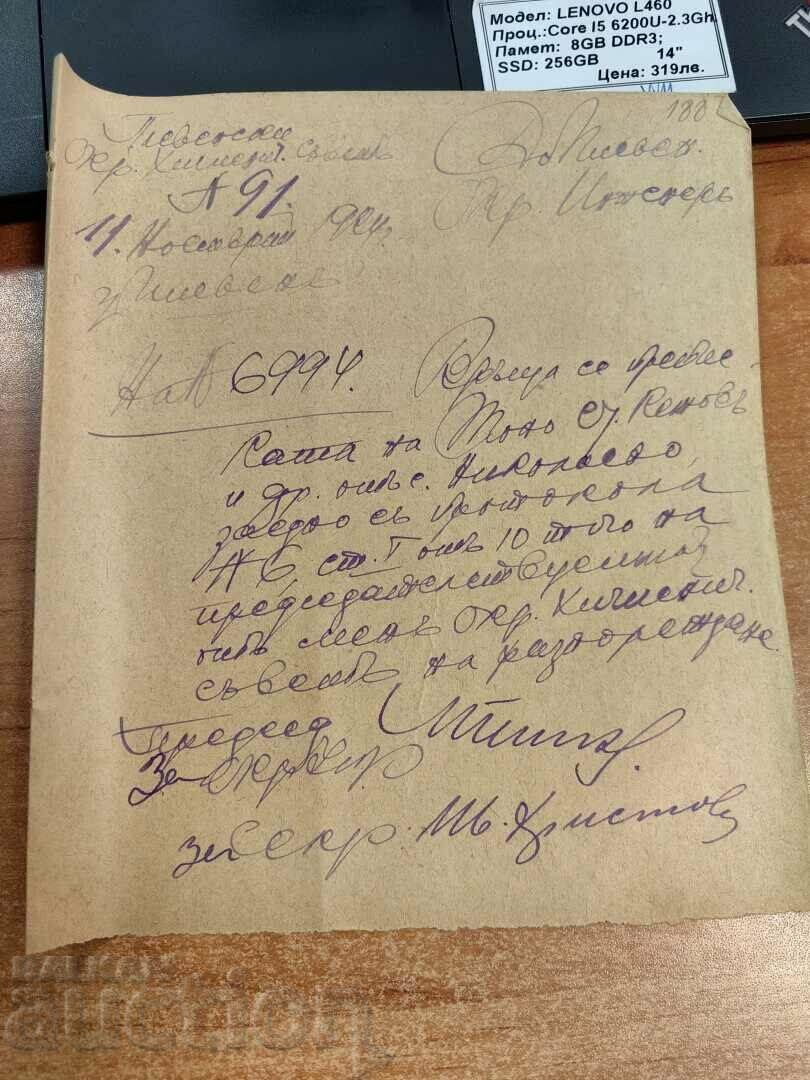 Модел: LENOVO L460
Проц.:Core I5 6200U-2.3Gh
Памет: 8GB DDR3;
SSD: 256GB 14"
Цена: 319лв.
Плѣвенски
Окр. Хигиенич. съветъ
№ 91.
11. Ноемврий 192
гр. Плѣвенъ
До Плѣвен.
Окр. Инженеръ
На № 6994.
Връща се преписката на
и др. отъ с. Николаево,
заедно съ протокола
№ 6, ст. I отъ 10 того на
председателствуемия
отъ менъ Окр. Хигиенич.
съветъ на разпореждане.
Председ
За Секр.
За Секр. Ив. Христовъ
BALKAN
auction